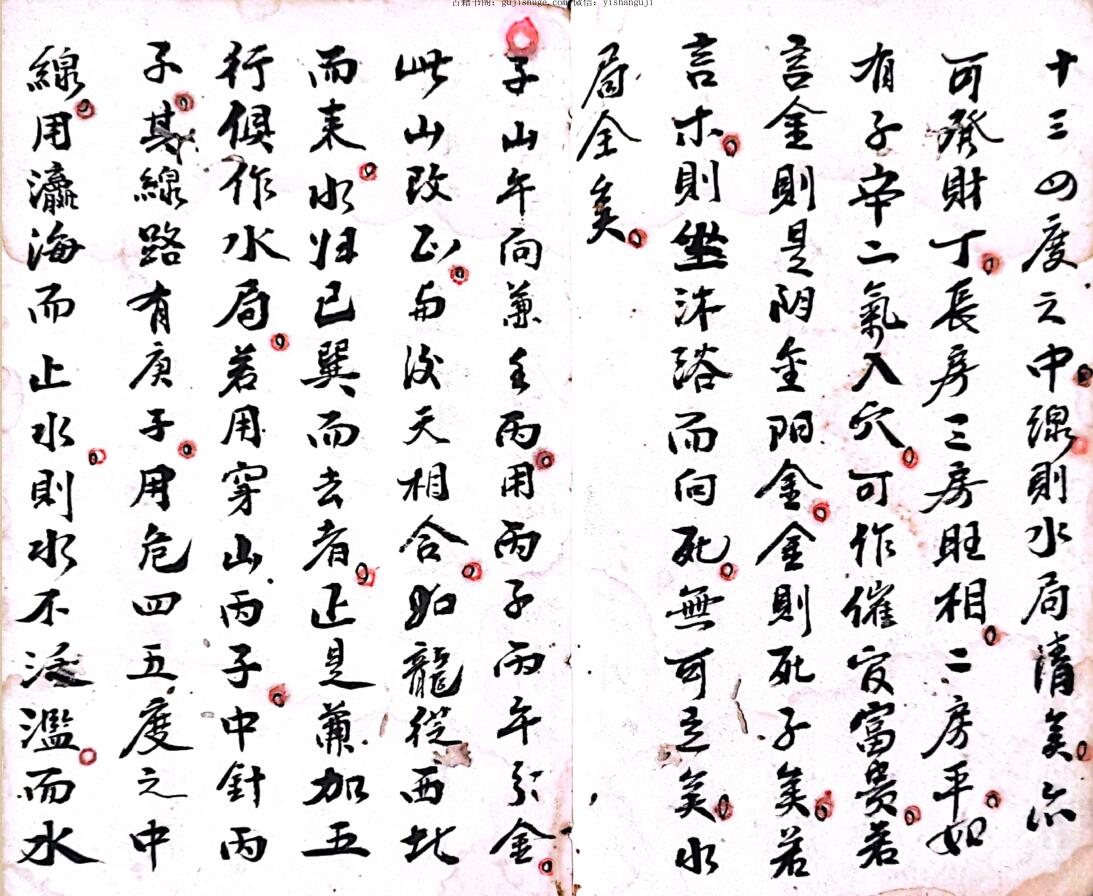 古籍书阁：gujishuge.com 微信：yishanguji
十三四度之中線則水局清矣亦
可發財丁長房三房旺相二房平如
有子辛二氣入穴可作催官富貴若
言金則是阴金阳金金則死子矣若
言木則坐沐浴而向死無可立矣水
局全矣
子山午向兼壬丙用丙子丙午分金
此山改正与後天相合如龍從西北
而来水归巳巽而去者正是兼加五
行俱作水局若用穿山丙子中針丙
子其線路有庚子用危四五度之中
線用瀛海而止水則水不泛濫而水